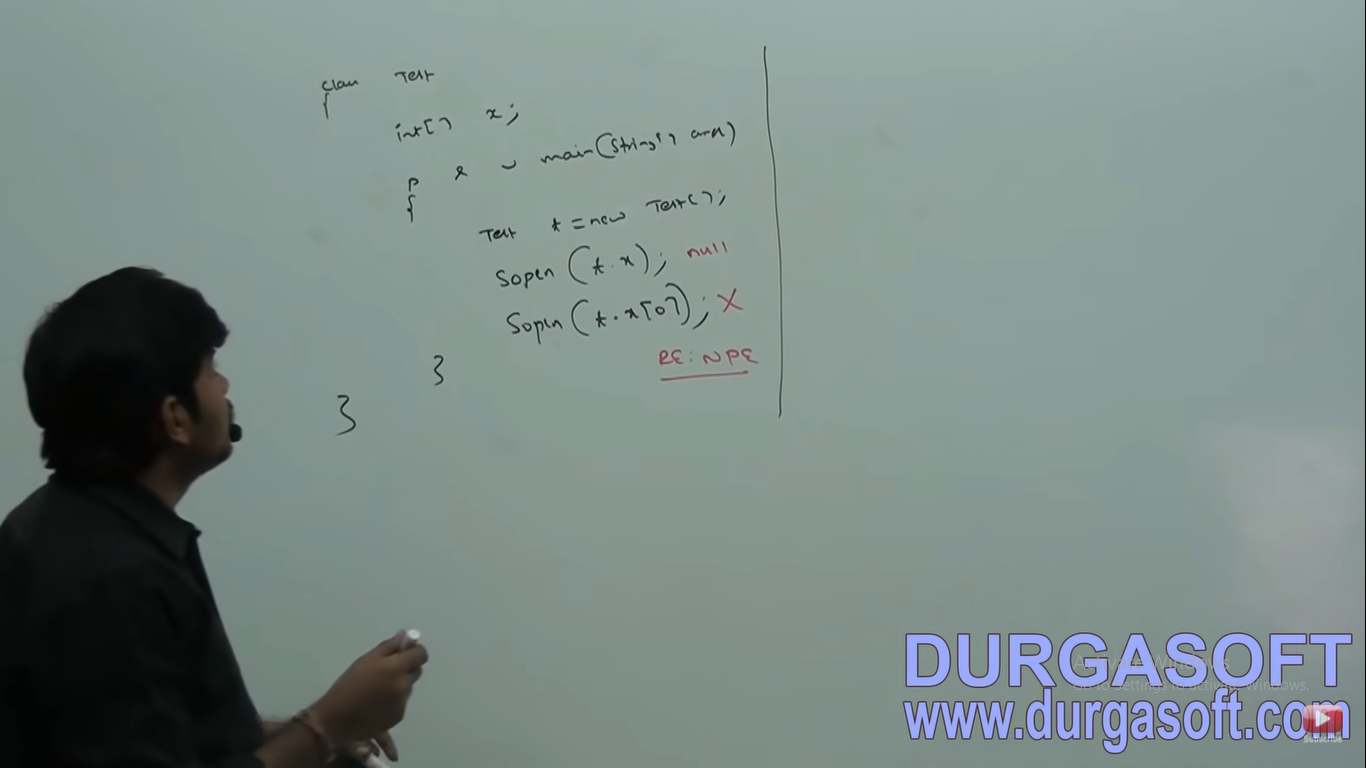 class Test
{
int[] x;
p s v main(String[] args)
{
Test t = new Test();
Sopln (t.x); null
Sopln (t.x[0]); X
RE: NPE
}
}
DURGASOFT
www.durgasoft.com
Activate Windows
Go to Settings to activate Windows.
SUBSCRIBE